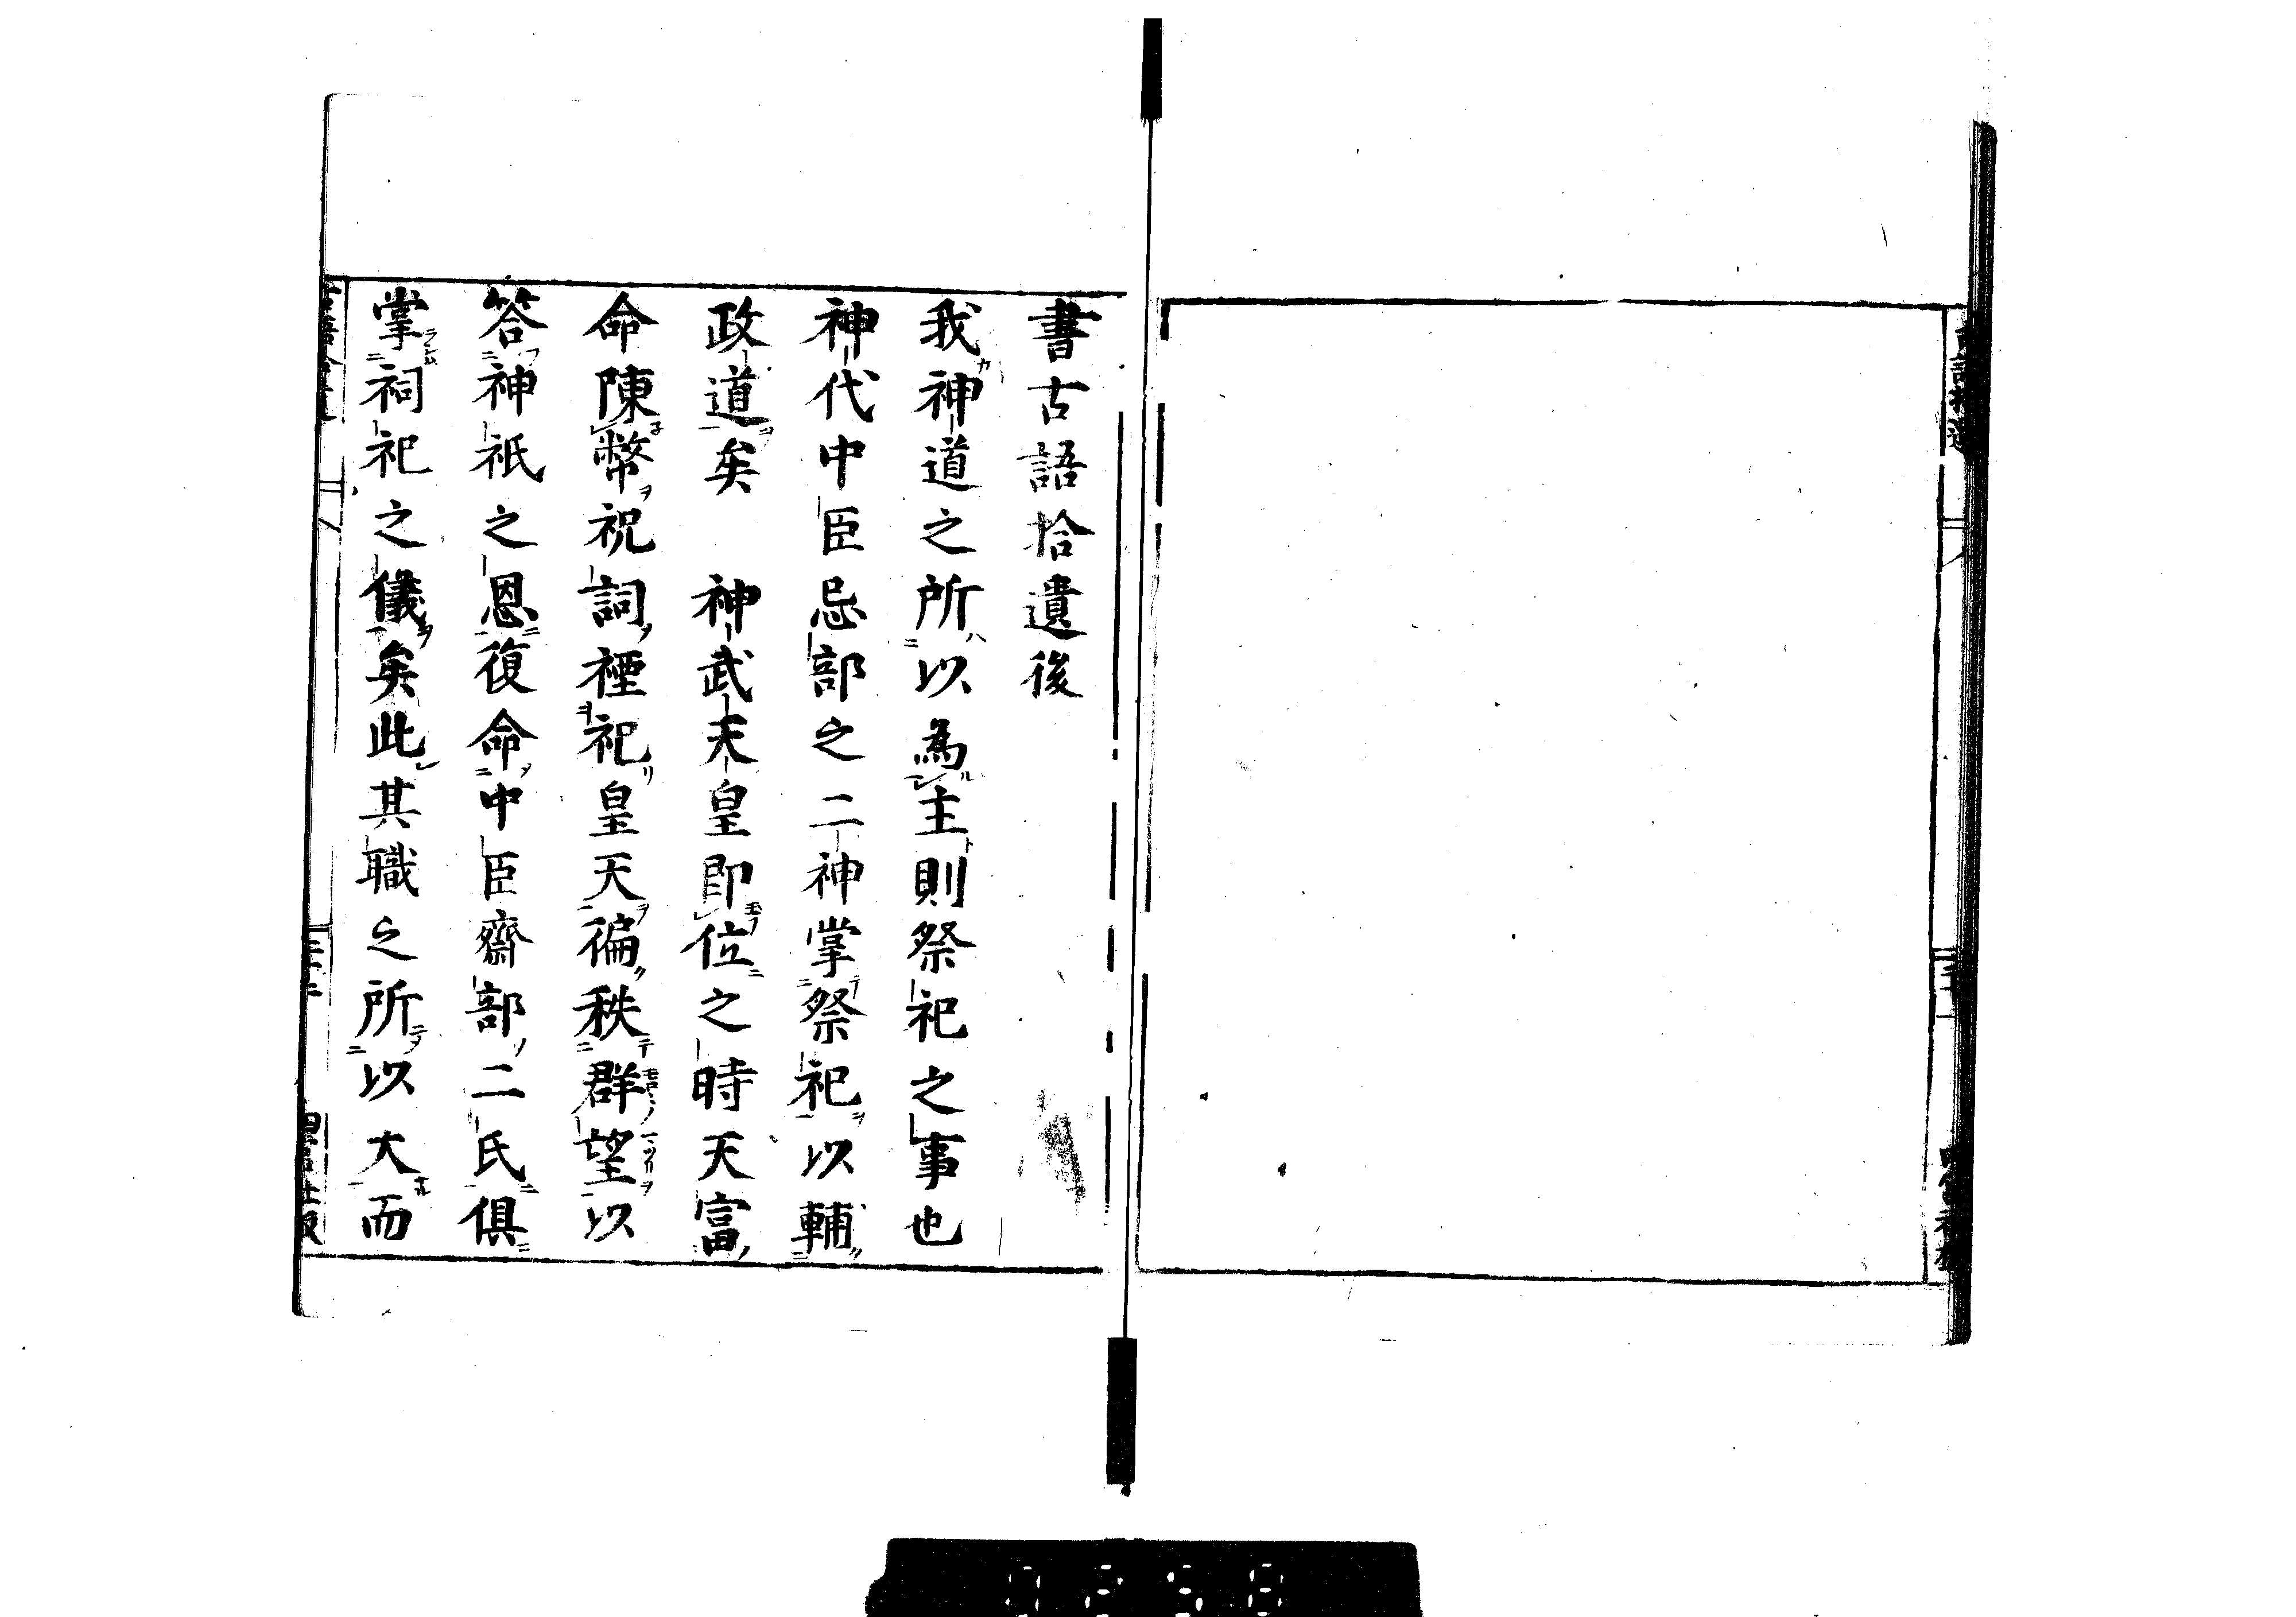 書古語拾遺後
我神道之所以為主則祭祀之事也
神代中臣忌部之二神掌祭祀以輔
政道矣　神武天皇即位之時天富
命陳幣祝詞禋祀皇天徧秩群望以
答神祇之恩復命中臣齋部二氏俱
掌祠祀之儀矣此其職之所以大而